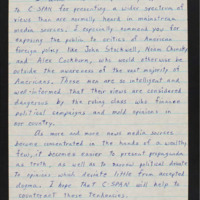 to C-SPAN for presenting a wider spectrum of
views than are normally heard in mainstream
media sources. I especially commend you for
exposing the public to critics of American
foreign policy like John Stockwell, Noam Chomsky
and Alex Cockburn, who would otherwise be
outside the awareness of the vast majority of
Americans. These men are so intelligent and
well informed that their views are considered
dangerous by the ruling class who finance
political campaigns and mold opinions in
our country.
As more and more news media sources
become concentrated in the hands of a wealthy
few, it becomes easier to present propaganda
as truth, as well as to narrow political debate
to opinions which deviate little from accepted
dogma. I hope that C-SPAN will help to
counteract these tendencies.